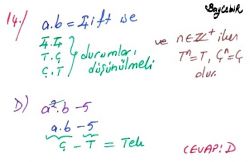 Bayçebir
14.) a.b = Çift ise
Ç.Ç
T.Ç
Ç.T
durumları düşünülmeli
ve n∈Z⁺ iken
Tⁿ=T, Çⁿ=Ç
dur.
D) a².b-5
a.b-5
Ç - T = Tek
CEVAP: D